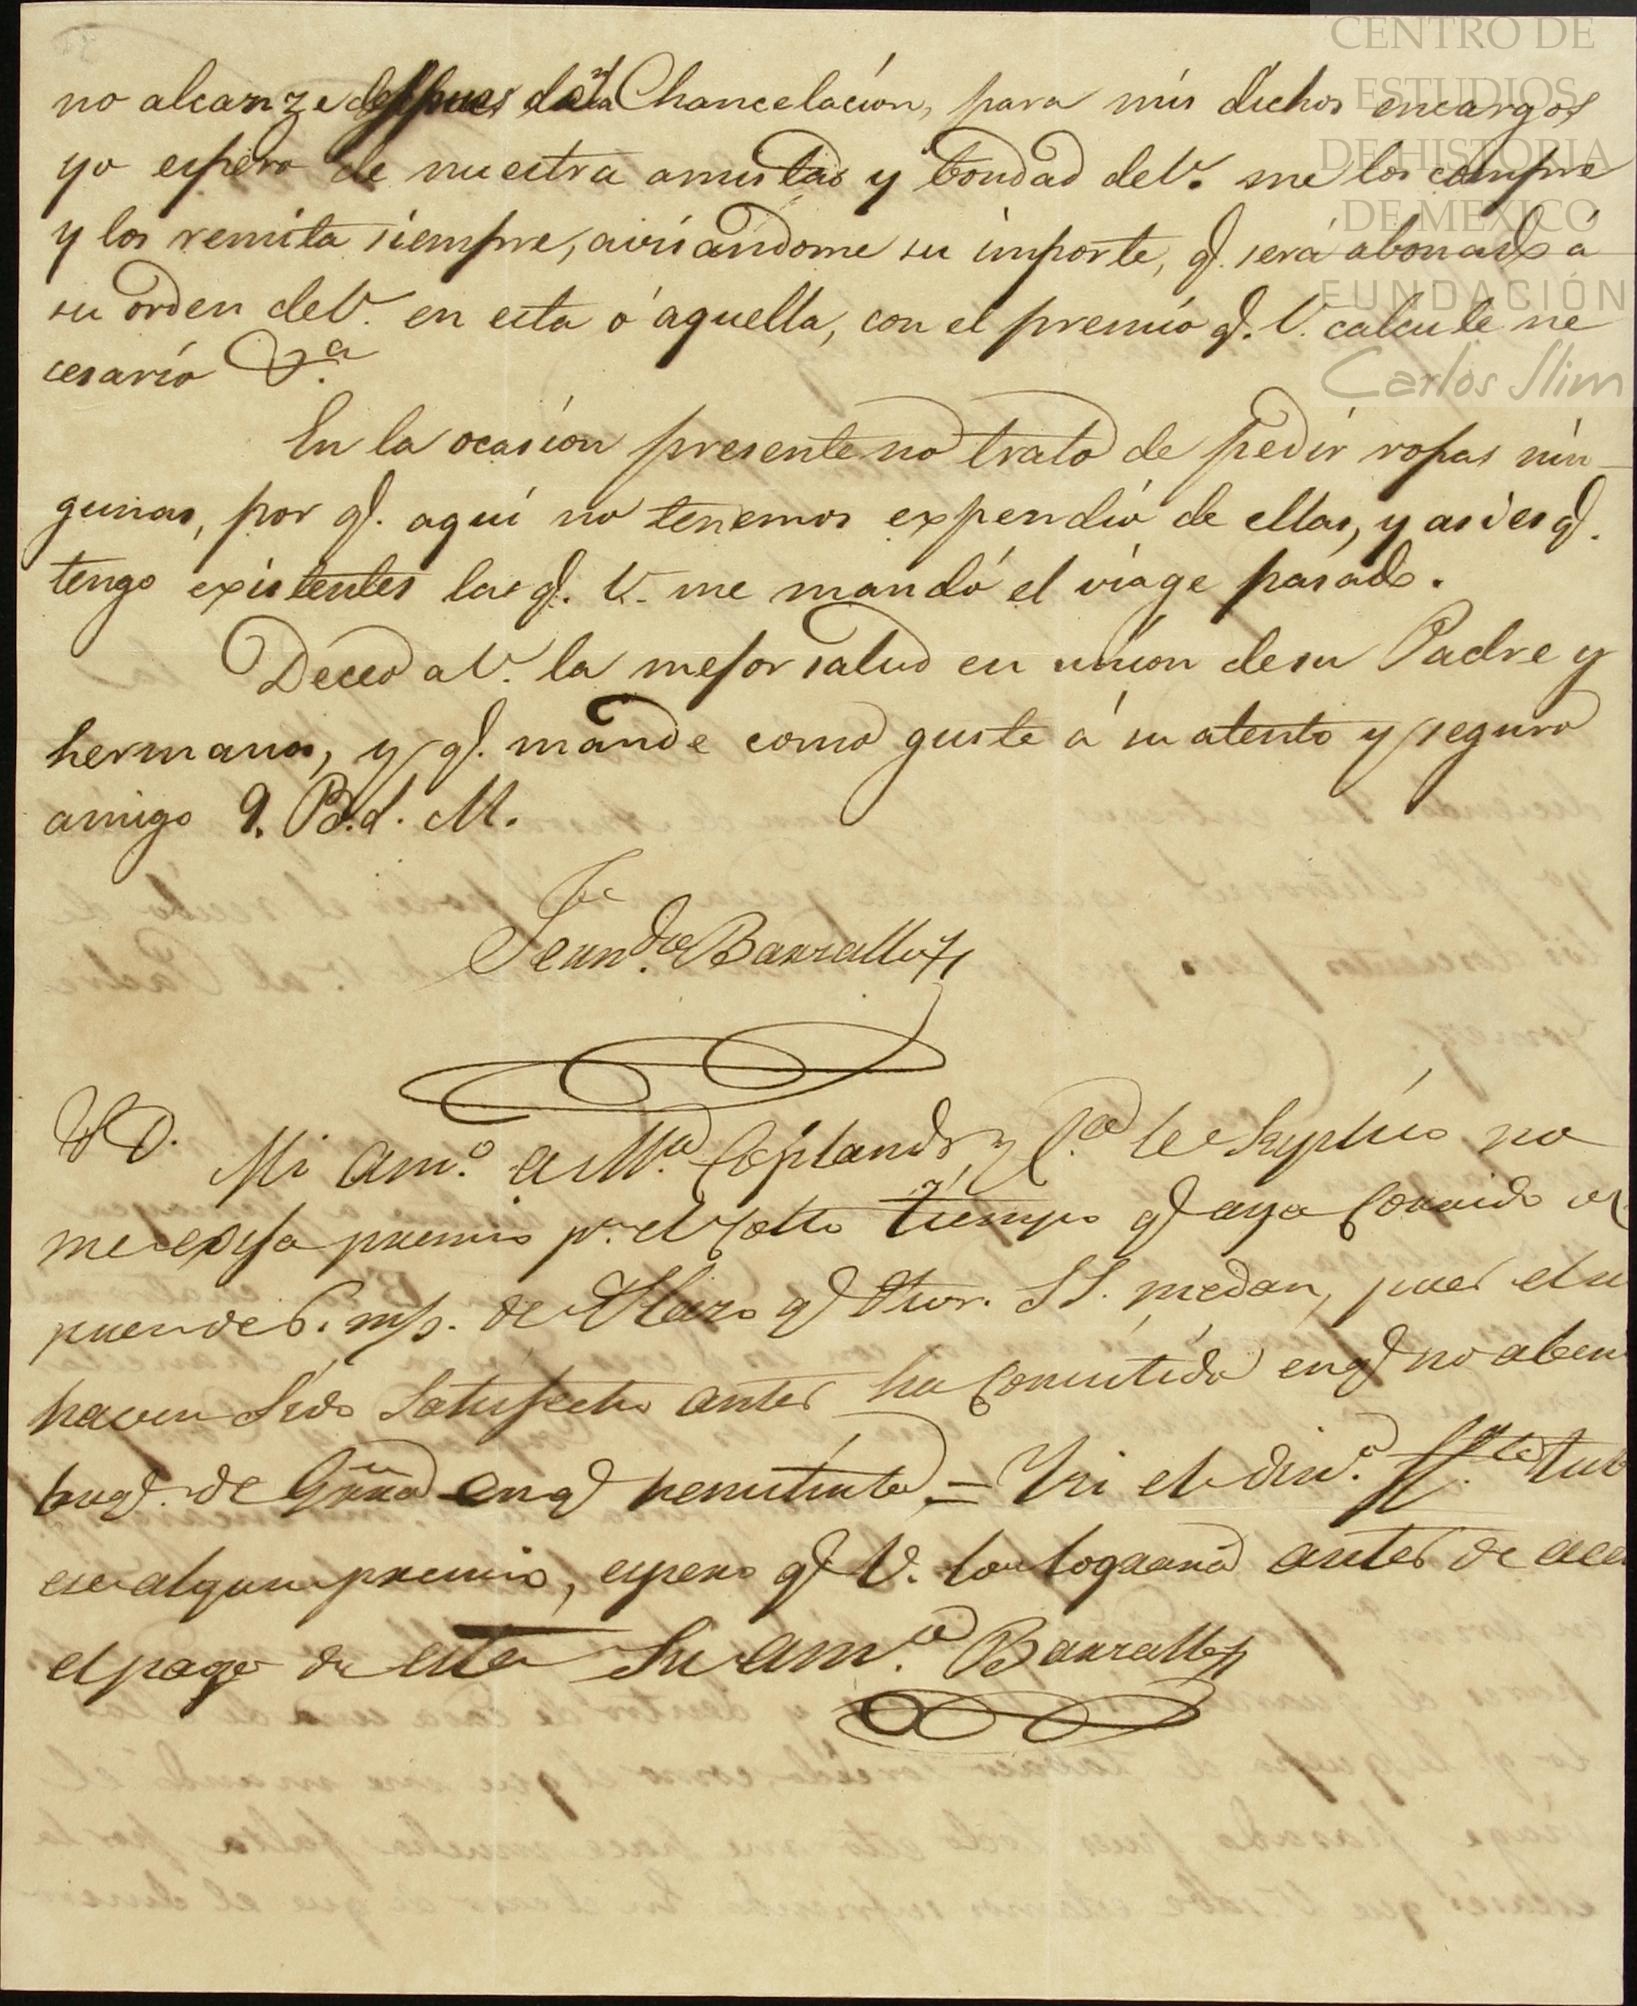 CENTRO DE
ESTUDIOS
DE HISTORIA
DE MEXICO
FUNDACIÓN
Carlos Slim
no alcanze despues de la Chancelacion, para mis dichos encargos
yo espero de nuestra amistad y bondad de V. me los compre
y los remita siempre, avisándome su importe, q. será abonado á
su orden de V. en esta ó aquella, con el premio q. V. calcule ne
cesario &.a
En la ocasion presente no trato de pedir ropas nin-
gunas, por q. aquí no tenemos expendio de ellas, y asi es q.
tengo existentes las q. V. me mandó el viage pasado.
Deceo a V. la mejor salud en union de su Padre y
hermanos, y q. mande como guste á su atento y seguro
amigo Q. B. S. M.
Fern.do Barzallo
P. D. Mi am.o á Copland y C.a le suplico no
me exija premio p.r el tiempo q aya corrido
pues de de Haro q SS. me dan, pues
haver sido satisfecho antes ha concentido en q no
de en q = Y si el din.o
ese algun premio, espero q V. lo lograra antes de
el pago de esta Su am.o Barzallo